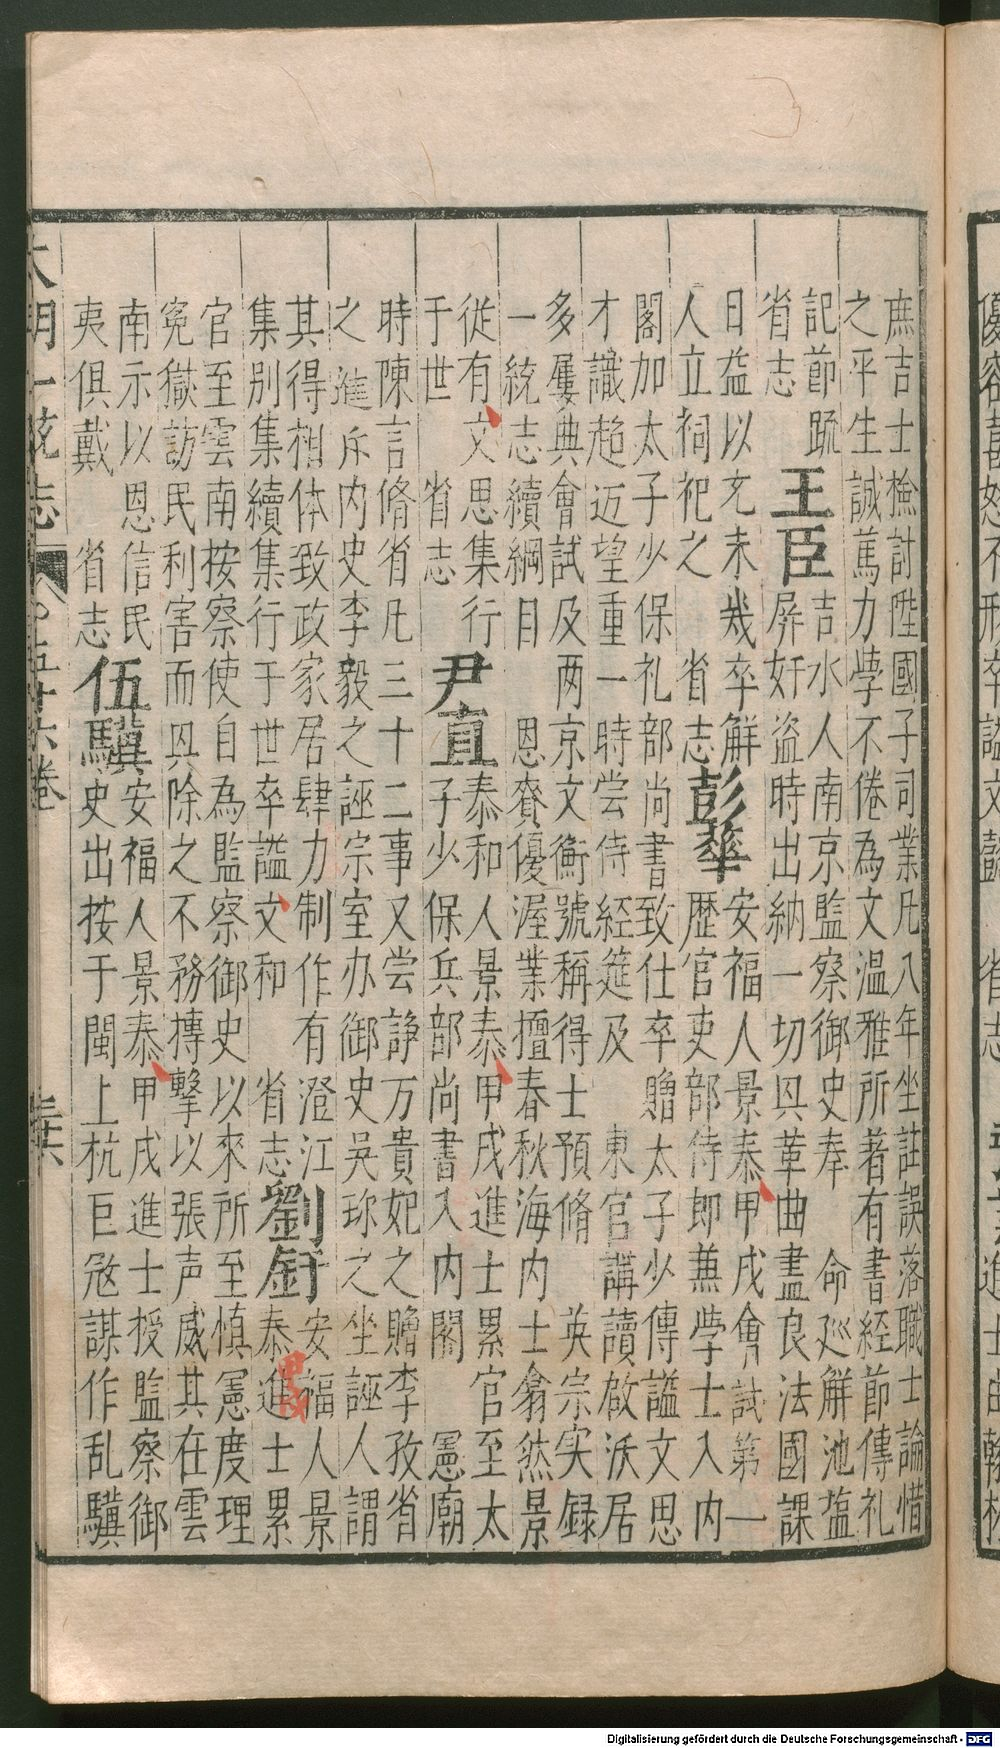 庶吉士檢討陞國子司業凡八年坐註誤落職士論惜
之平生誠篤力學不倦為文溫雅所著有書經節傳礼
記節疏
省志
王臣
吉水人南京監察御史奉　命廵觧池塩
屏奸盗時出納一切具革曲盡良法國課
日益以充未幾卒觧
人立祠祀之　省志
彭華
安福人景泰甲戌會試第一
歷官吏部侍郎兼学士入内
閣加太子少保礼部尚書致仕卒贈太子少傳謚文思
才識超迈望重一時尝侍経筵及　東官講讀啟沃居
多屢典會試及两京文衡號稱得士預脩　英宗实録
一統志續綱目　恩賚優渥業擅春秋海内士翕然景
從有文思集行
于世　省志
尹直
泰和人景泰甲戌進士累官至太
子少保兵部尚書入内閣　憲廟
時陳言脩省凡三十二事又尝諍万貴妃之贈李孜省
之進斥内史李毅之誣宗室办御史吳珎之坐誣人謂
其得相体致政家居肆力制作有澄江
集别集續集行于世卒謚文和　省志
劉釪
安福人景
泰進士累
甲戌
官至雲南按察使自為監察御史以來所至慎憲度理
冤獄訪民利害而具除之不務摶擊以張声威其在雲
南示以恩信民
夷俱戴　省志
伍驥
安福人景泰甲戌進士授監察御
史出按于閩上杭巨冦謀作乱驥
大明一統志　五十六卷　三十六
Digitalisierung gefördert durch die Deutsche Forschungsgemeinschaft - DFG